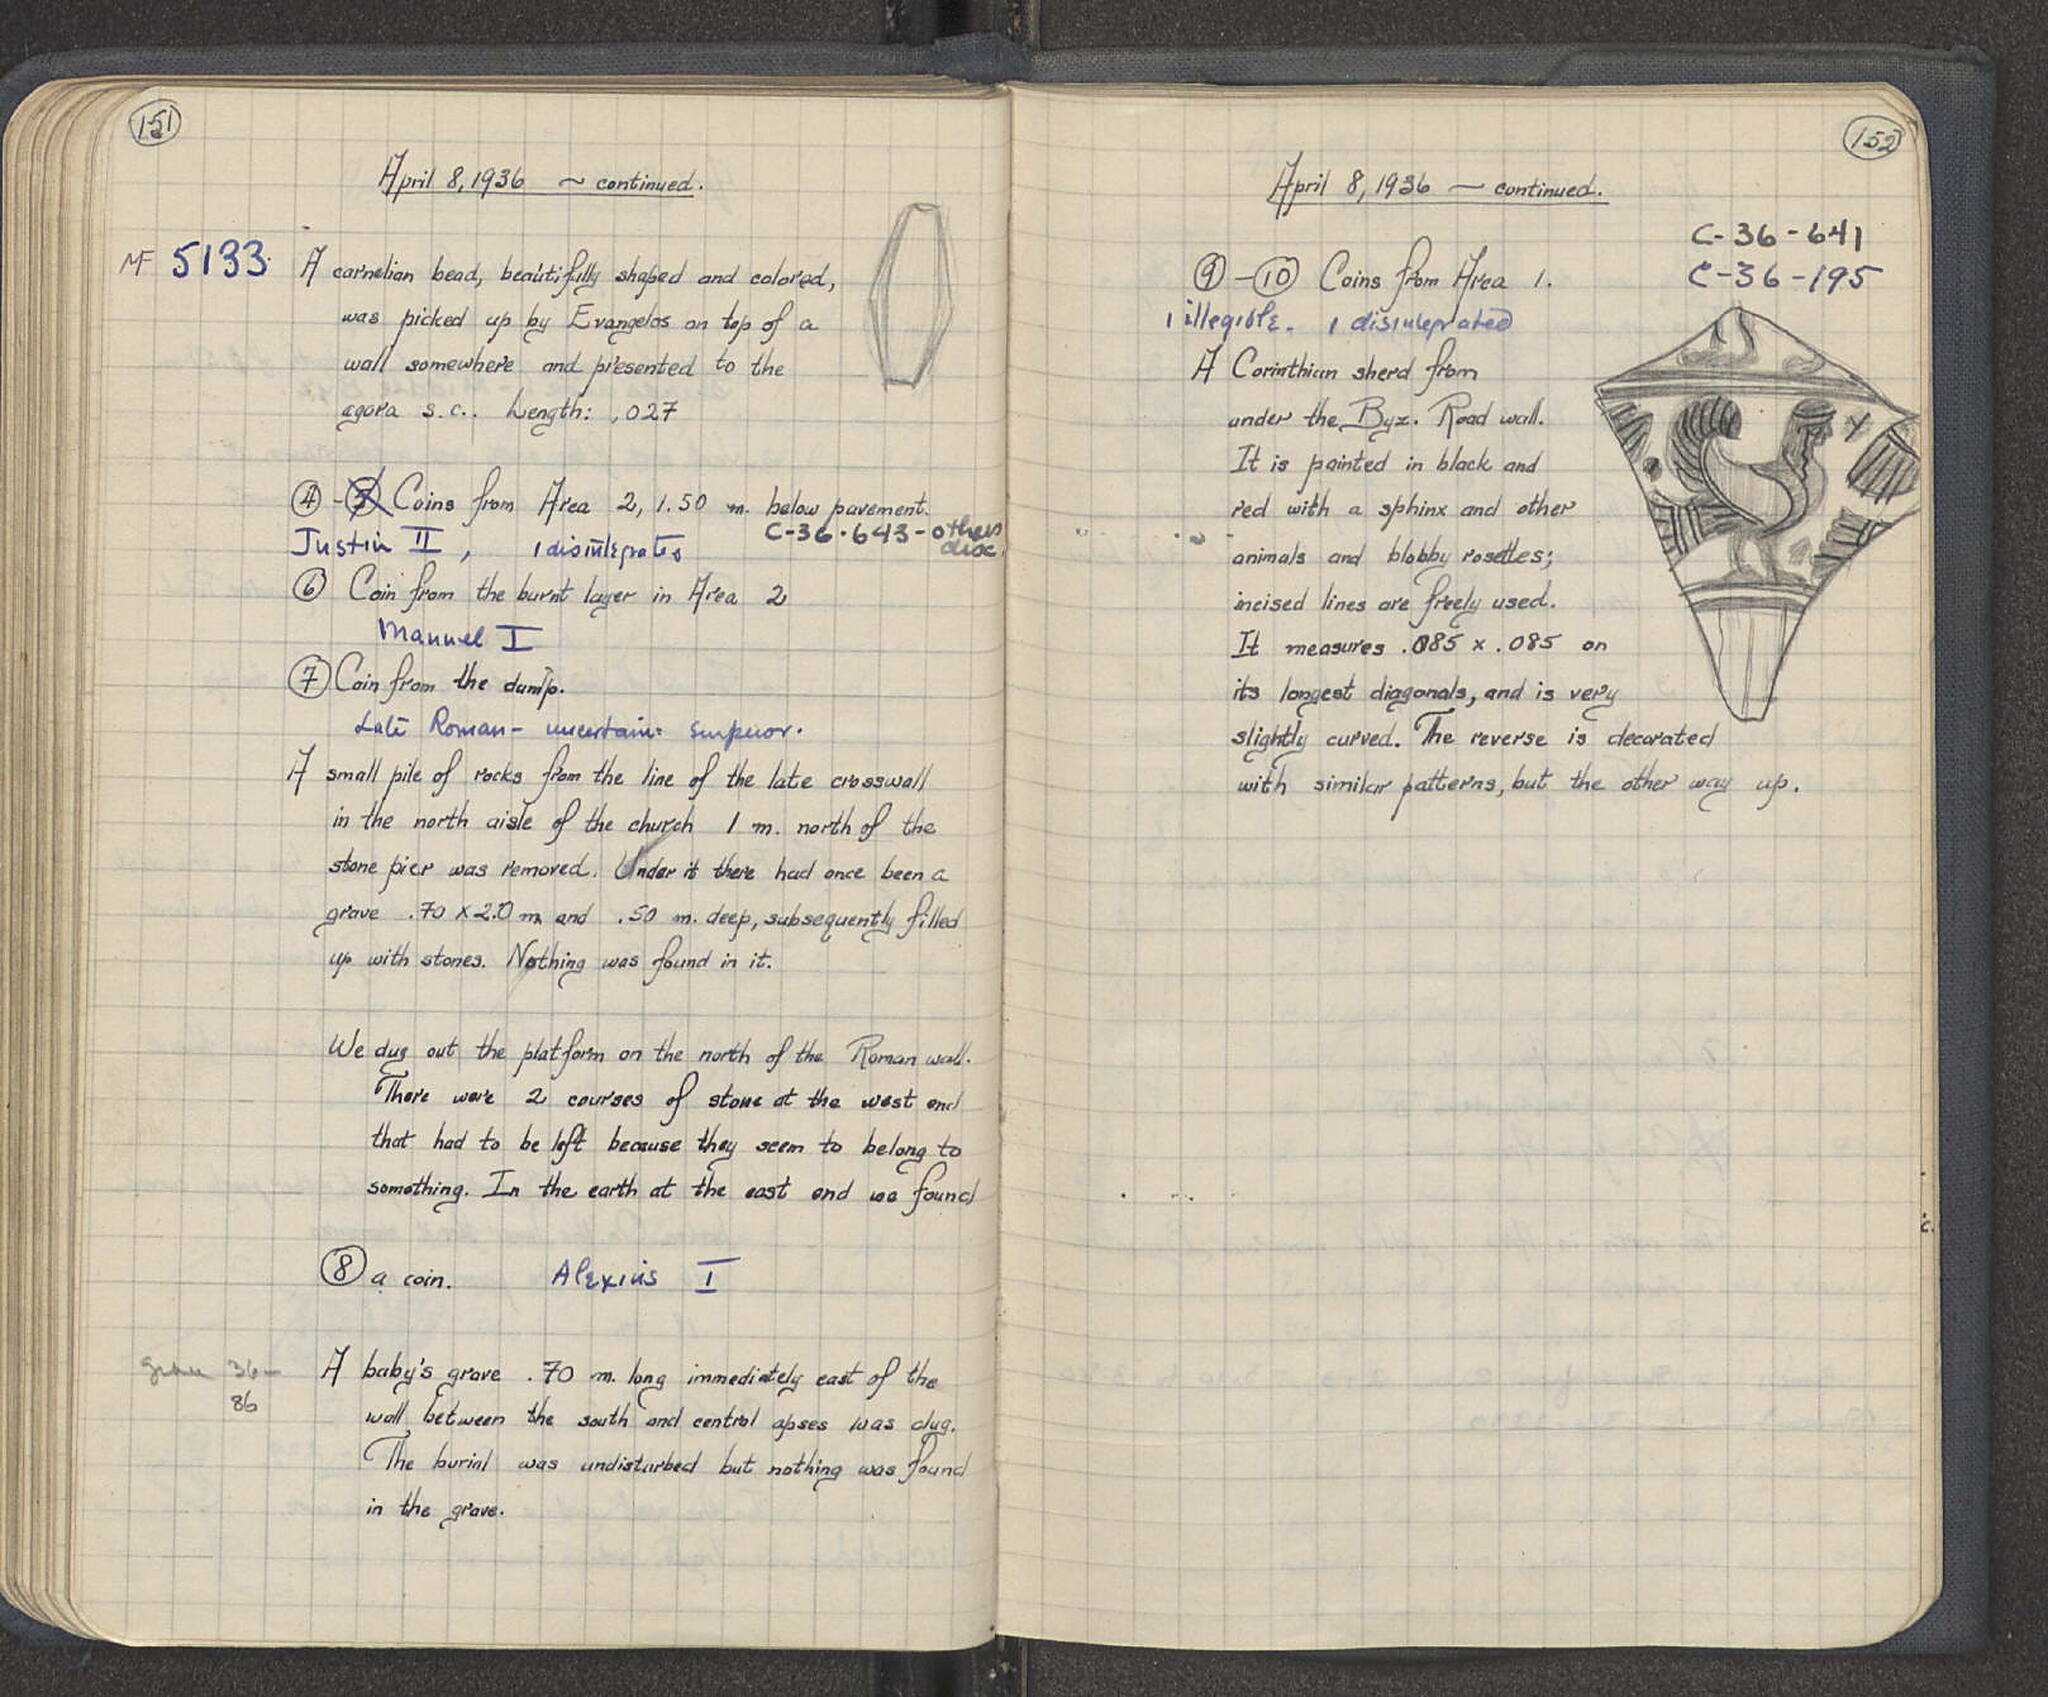 151
April 8, 1936 ~ continued.
MF 5133
A carnelian bead, beautifully shaped and colored,
was picked up by Evangelos on top of a
wall somewhere and presented to the
agora s.c.. Length: .027
4 - 5 Coins from Area 2, 1.50 m. below pavement.
C-36-643-others
disc.
Justin II, 1 disintegrated
6 Coin from the burnt layer in Area 2
Manuel I
7 Coin from the dump.
Late Roman - uncertain emperor.
A small pile of rocks from the line of the late crosswall
in the north aisle of the church 1 m. north of the
stone pier was removed. Under it there had once been a
grave .70 x 2.0 m and .50 m. deep, subsequently filled
up with stones. Nothing was found in it.
We dug out the platform on the north of the Roman wall.
There were 2 courses of stone at the west end
that had to be left because they seem to belong to
something. In the earth at the east end we found
8 a coin. Alexius I
grave 36-
86
A baby's grave .70 m. long immediately east of the
wall between the south and central apses was dug.
The burial was undisturbed but nothing was found
in the grave.
152
April 8, 1936 — continued.
C-36-641
C-36-195
9 - 10 Coins from Area 1.
1 illegible. 1 disintegrated
A Corinthian sherd from
under the Byz. Road wall.
It is painted in black and
red with a sphinx and other
animals and blobby rosettes;
incised lines are freely used.
It measures .085 x .085 on
its longest diagonals, and is very
slightly curved. The reverse is decorated
with similar patterns, but the other way up.